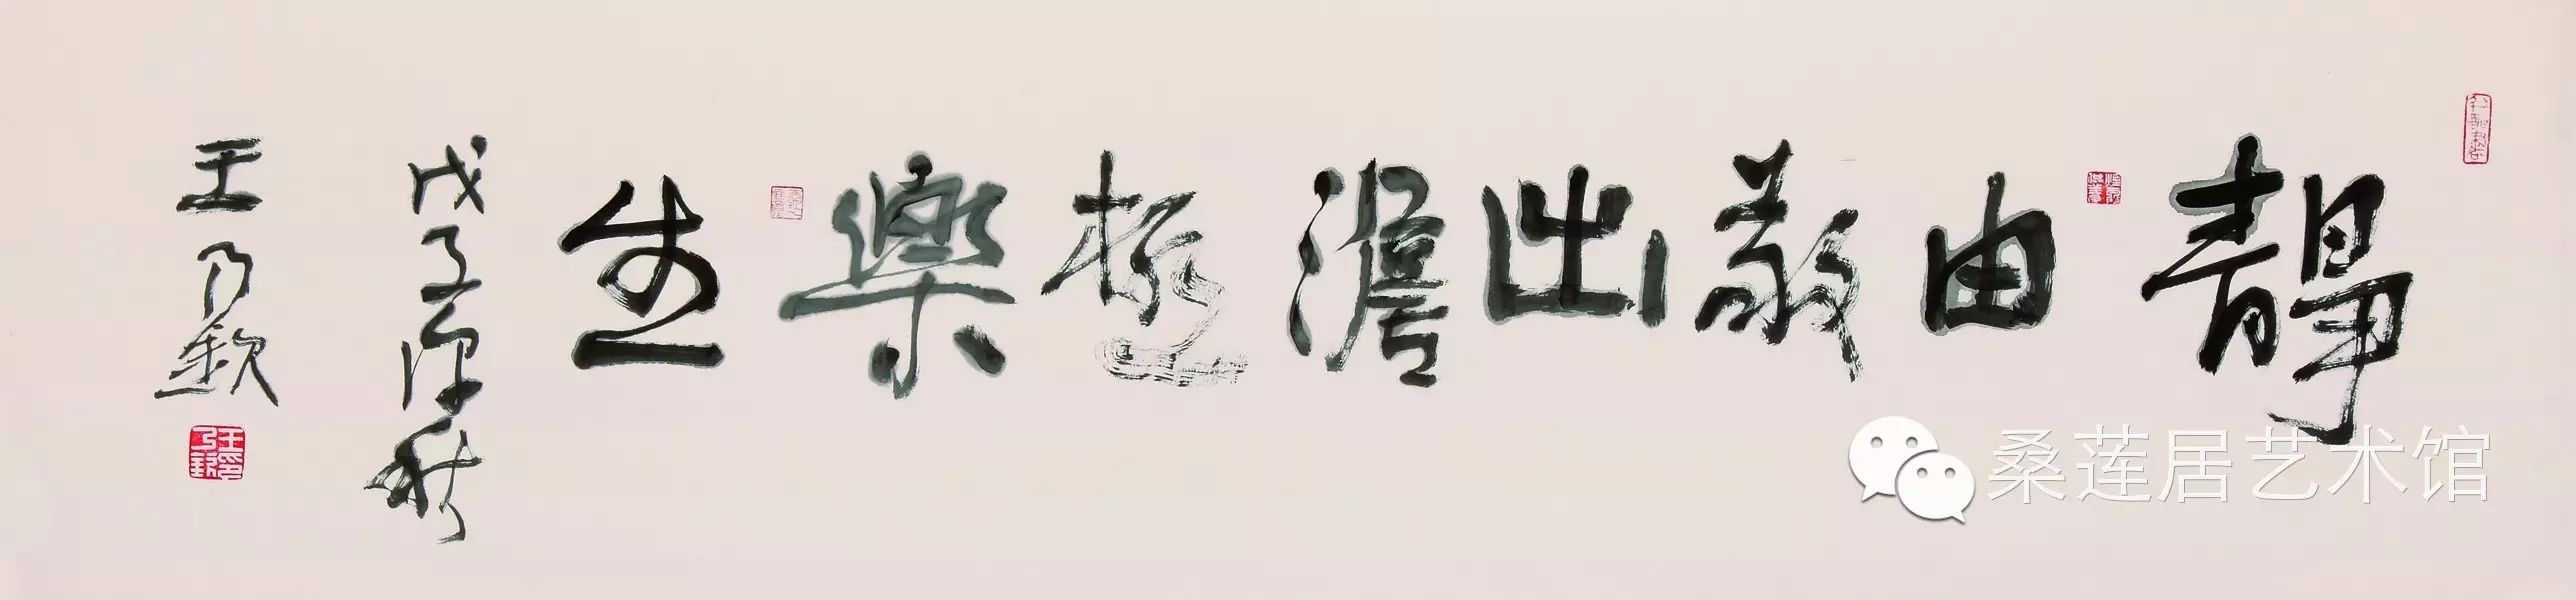 靜由敬出澹極樂生
戊子深秋
王乃欽
桑莲居艺术馆